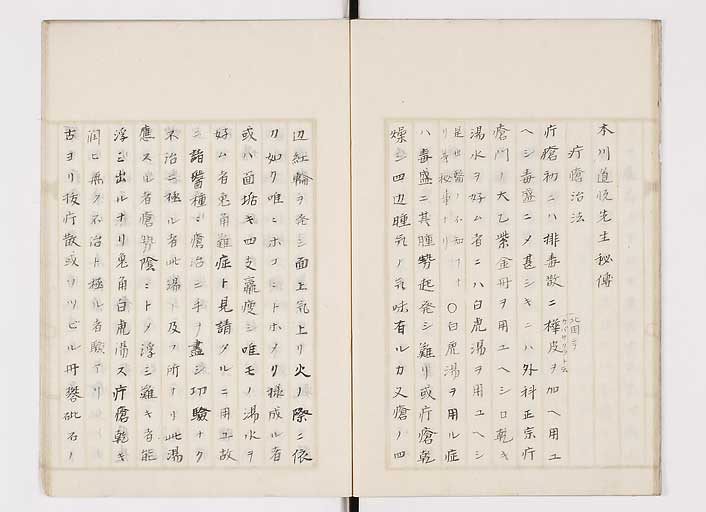 木川道悦先生秘傳
疔瘡治法
疔瘡初ニハ排毒散ニ樺皮ヲ加ヘ用ユ
北国ニテ
カバザクラト云
ヘシ毒盛ニメ甚シキニハ外科正宗疔
瘡門ノ大乙紫金丹ヲ用ユヘシ口乾キ
湯水ヲ好ム者ニハ白虎湯ヲ用ユヘシ
是世醫ノ不知フナリ秘事ナリ〇白虎湯ヲ用ル症
ハ毒盛ニ其腫勢起発シ難リ或疔瘡乾
燥シ四辺腫気ノ気味有ルカ又瘡ノ四
辺紅輪ヲ発シ面上気上リ火ノ際ニ依
ル如ク唯ニホコニトホメリ様成ル者
或ハ面垢キ四支羸痩シ唯モノ湯水ヲ
好ム者兎角難症ト見請タルニ用ユ故
ニ諸醫種ニ瘡治ニ手ヲ盡シ功驗ナク
不治ニ極ル者此湯ト及フ所ナリ此湯
應スル者瘡勢陰ミトメ浮ミ難キ者能
浮ミ出ルナリ兎角白虎湯ス疔瘡乾キ
潤ヒ無ク不治ト極ル者驗アリ
古ヨリ抜疔散或ハツビル丹礬砒石ノ